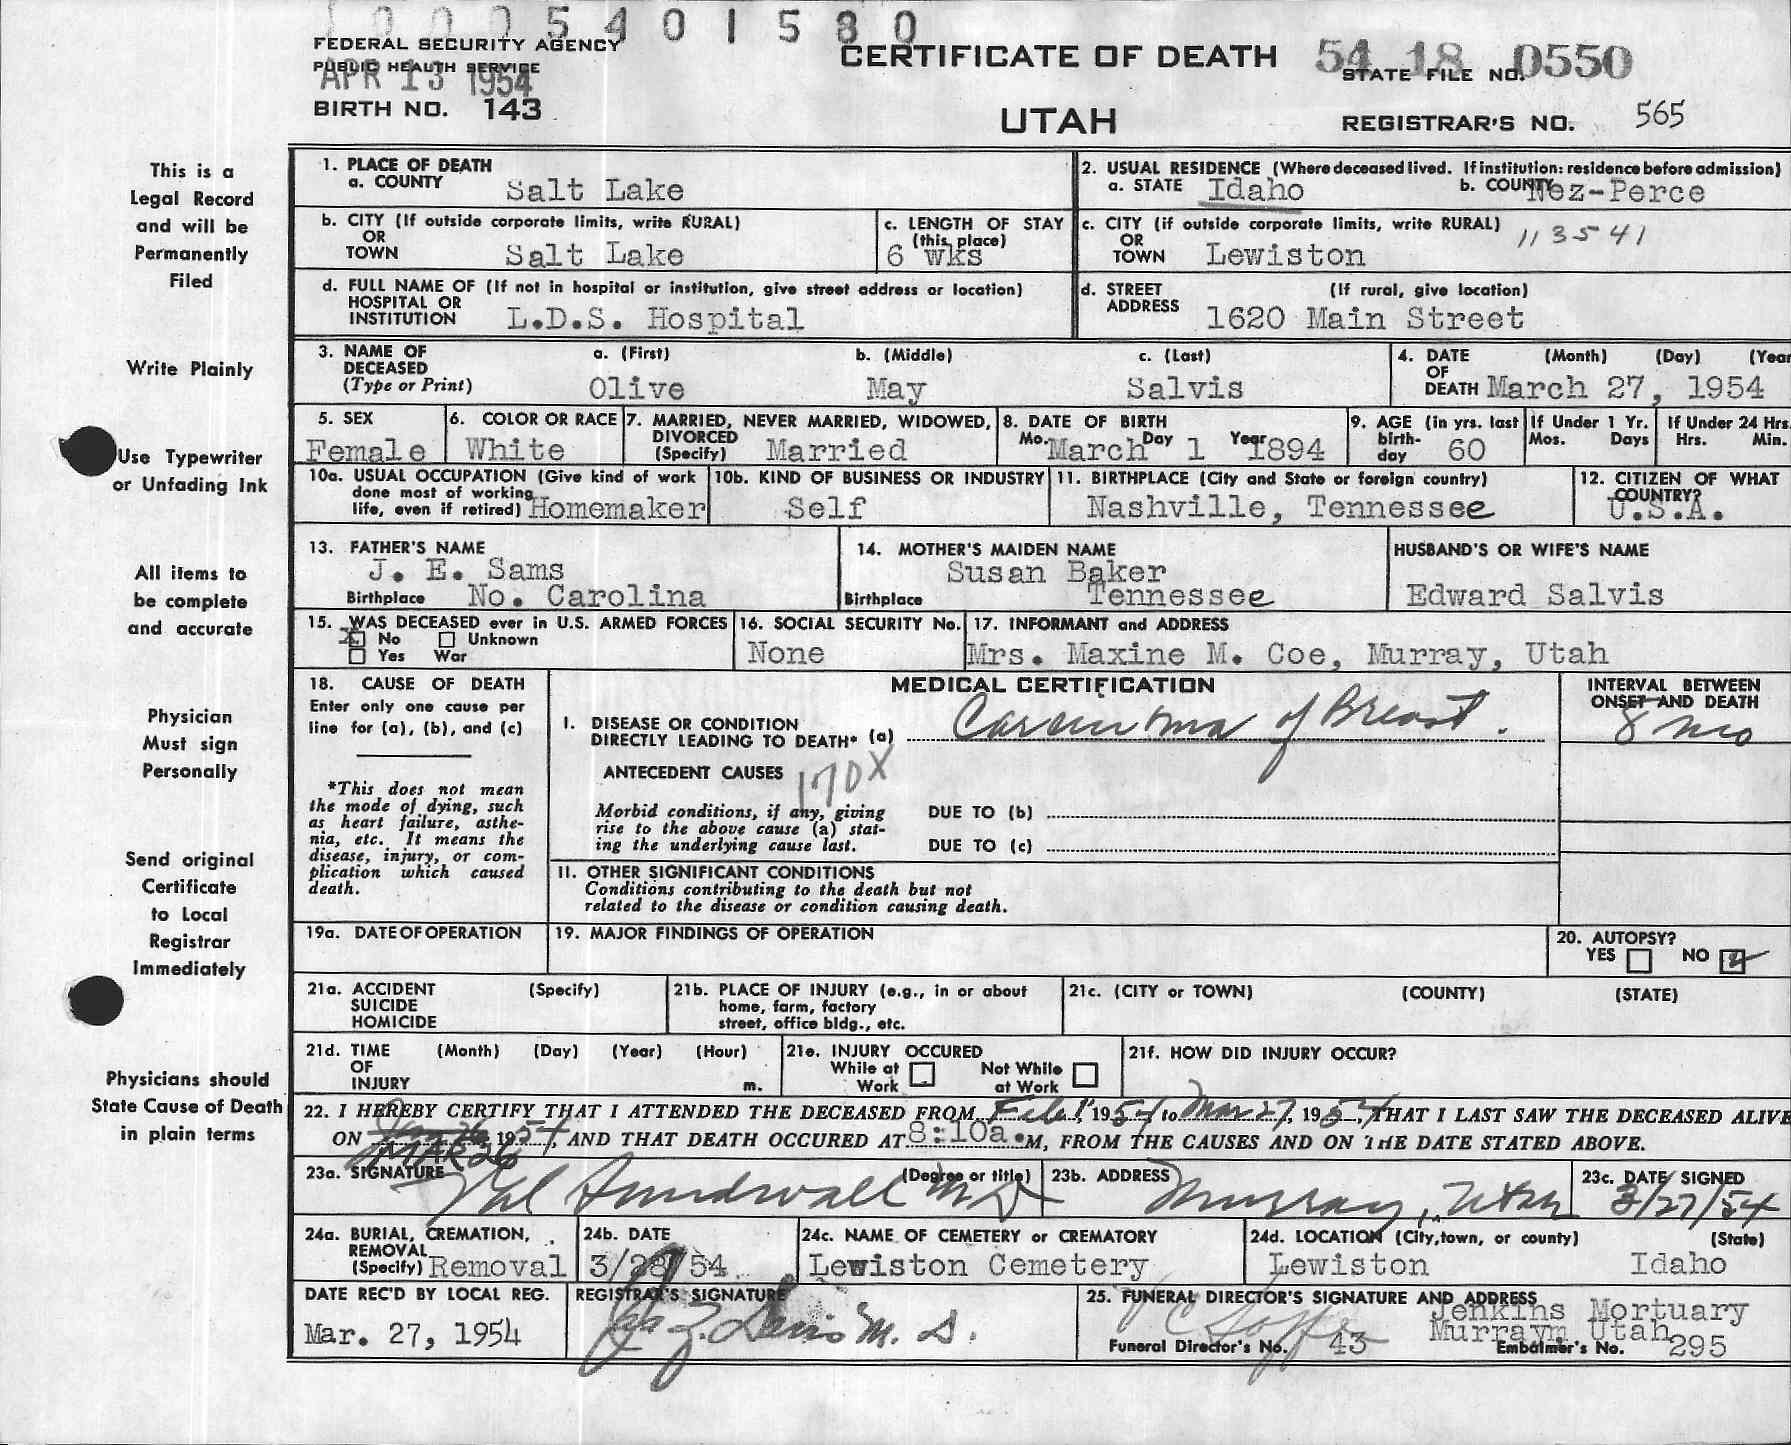 0005401580
FEDERAL SECURITY AGENCY
PUBLIC HEALTH SERVICE
APR 13 1954
BIRTH NO. 143
CERTIFICATE OF DEATH
UTAH
54 18 0550
STATE FILE NO.
REGISTRAR'S NO. 565
This is a
Legal Record
and will be
Permanently
Filed
Write Plainly
Use Typewriter
or Unfading Ink
All items to
be complete
and accurate
Physician
Must sign
Personally
Send original
Certificate
to Local
Registrar
Immediately
Physicians should
State Cause of Death
in plain terms
1. PLACE OF DEATH
a. COUNTY Salt Lake
2. USUAL RESIDENCE (Where deceased lived. If institution: residence before admission)
a. STATE Idaho b. COUNTY Nez-Perce
b. CITY (If outside corporate limits, write RURAL)
OR
TOWN Salt Lake
c. LENGTH OF STAY
(this place)
6 wks
c. CITY (if outside corporate limits, write RURAL) 113541
OR
TOWN Lewiston
d. FULL NAME OF (If not in hospital or institution, give street address or location)
HOSPITAL OR
INSTITUTION L.D.S. Hospital
d. STREET (If rural, give location)
ADDRESS 1620 Main Street
3. NAME OF DECEASED (Type or Print)
a. (First) b. (Middle) c. (Last)
Olive May Salvis
4. DATE (Month) (Day) (Year
OF
DEATH March 27, 1954
5. SEX
Female
6. COLOR OR RACE
White
7. MARRIED, NEVER MARRIED, WIDOWED,
DIVORCED
(Specify) Married
8. DATE OF BIRTH
Mo. March Day 1 Year 1894
9. AGE (in yrs. last
birth-
day 60
If Under 1 Yr.
Mos. Days
If Under 24 Hrs.
Hrs. Min.
10a. USUAL OCCUPATION (Give kind of work
done most of working
life, even if retired) Homemaker
10b. KIND OF BUSINESS OR INDUSTRY
Self
11. BIRTHPLACE (City and State or foreign country)
Nashville, Tennessee
12. CITIZEN OF WHAT
COUNTRY?
U.S.A.
13. FATHER'S NAME
J. E. Sams
Birthplace No. Carolina
14. MOTHER'S MAIDEN NAME
Susan Baker
Birthplace Tennessee
HUSBAND'S OR WIFE'S NAME
Edward Salvis
15. WAS DECEASED ever in U.S. ARMED FORCES
X No Unknown
Yes War
16. SOCIAL SECURITY No.
None
17. INFORMANT and ADDRESS
Mrs. Maxine M. Coe, Murray, Utah
18. CAUSE OF DEATH
Enter only one cause per
line for (a), (b), and (c)
*This does not mean
the mode of dying, such
as heart failure, asthe-
nia, etc. It means the
disease, injury, or com-
plication which caused
death.
MEDICAL CERTIFICATION
I. DISEASE OR CONDITION
DIRECTLY LEADING TO DEATH* (a) Carcinoma of Breast.
ANTECEDENT CAUSES 170X
Morbid conditions, if any, giving
rise to the above cause (a) stat-
ing the underlying cause last.
DUE TO (b)
DUE TO (c)
INTERVAL BETWEEN
ONSET AND DEATH
8 mo
II. OTHER SIGNIFICANT CONDITIONS
Conditions contributing to the death but not
related to the disease or condition causing death.
19a. DATE OF OPERATION
19. MAJOR FINDINGS OF OPERATION
20. AUTOPSY?
YES NO
21a. ACCIDENT (Specify)
SUICIDE
HOMICIDE
21b. PLACE OF INJURY (e.g., in or about
home, farm, factory
street, office bldg., etc.
21c. (CITY or TOWN) (COUNTY) (STATE)
21d. TIME (Month) (Day) (Year) (Hour)
OF
INJURY m.
21e. INJURY OCCURED
While at Work Not While at Work
21f. HOW DID INJURY OCCUR?
22. I HEREBY CERTIFY THAT I ATTENDED THE DECEASED FROM Feb 1, 1954, to Mar 27, 1954, THAT I LAST SAW THE DECEASED ALIVE
ON MAR 26 1954, AND THAT DEATH OCCURED AT 8:10a.M, FROM THE CAUSES AND ON THE DATE STATED ABOVE.
23a. SIGNATURE (Degree or title)
Val Sundwall M D
23b. ADDRESS
Murray, Utah
23c. DATE SIGNED
3/27/54
24a. BURIAL, CREMATION,
REMOVAL
(Specify) Removal
24b. DATE
3/28/54
24c. NAME OF CEMETERY or CREMATORY
Lewiston Cemetery
24d. LOCATION (City, town, or county) (State)
Lewiston Idaho
DATE REC'D BY LOCAL REG.
Mar. 27, 1954
REGISTRAR'S SIGNATURE
M. D.
25. FUNERAL DIRECTOR'S SIGNATURE AND ADDRESS
Jenkins Mortuary
Murraym Utah
Funeral Director's No. 43 Embalmer's No. 295